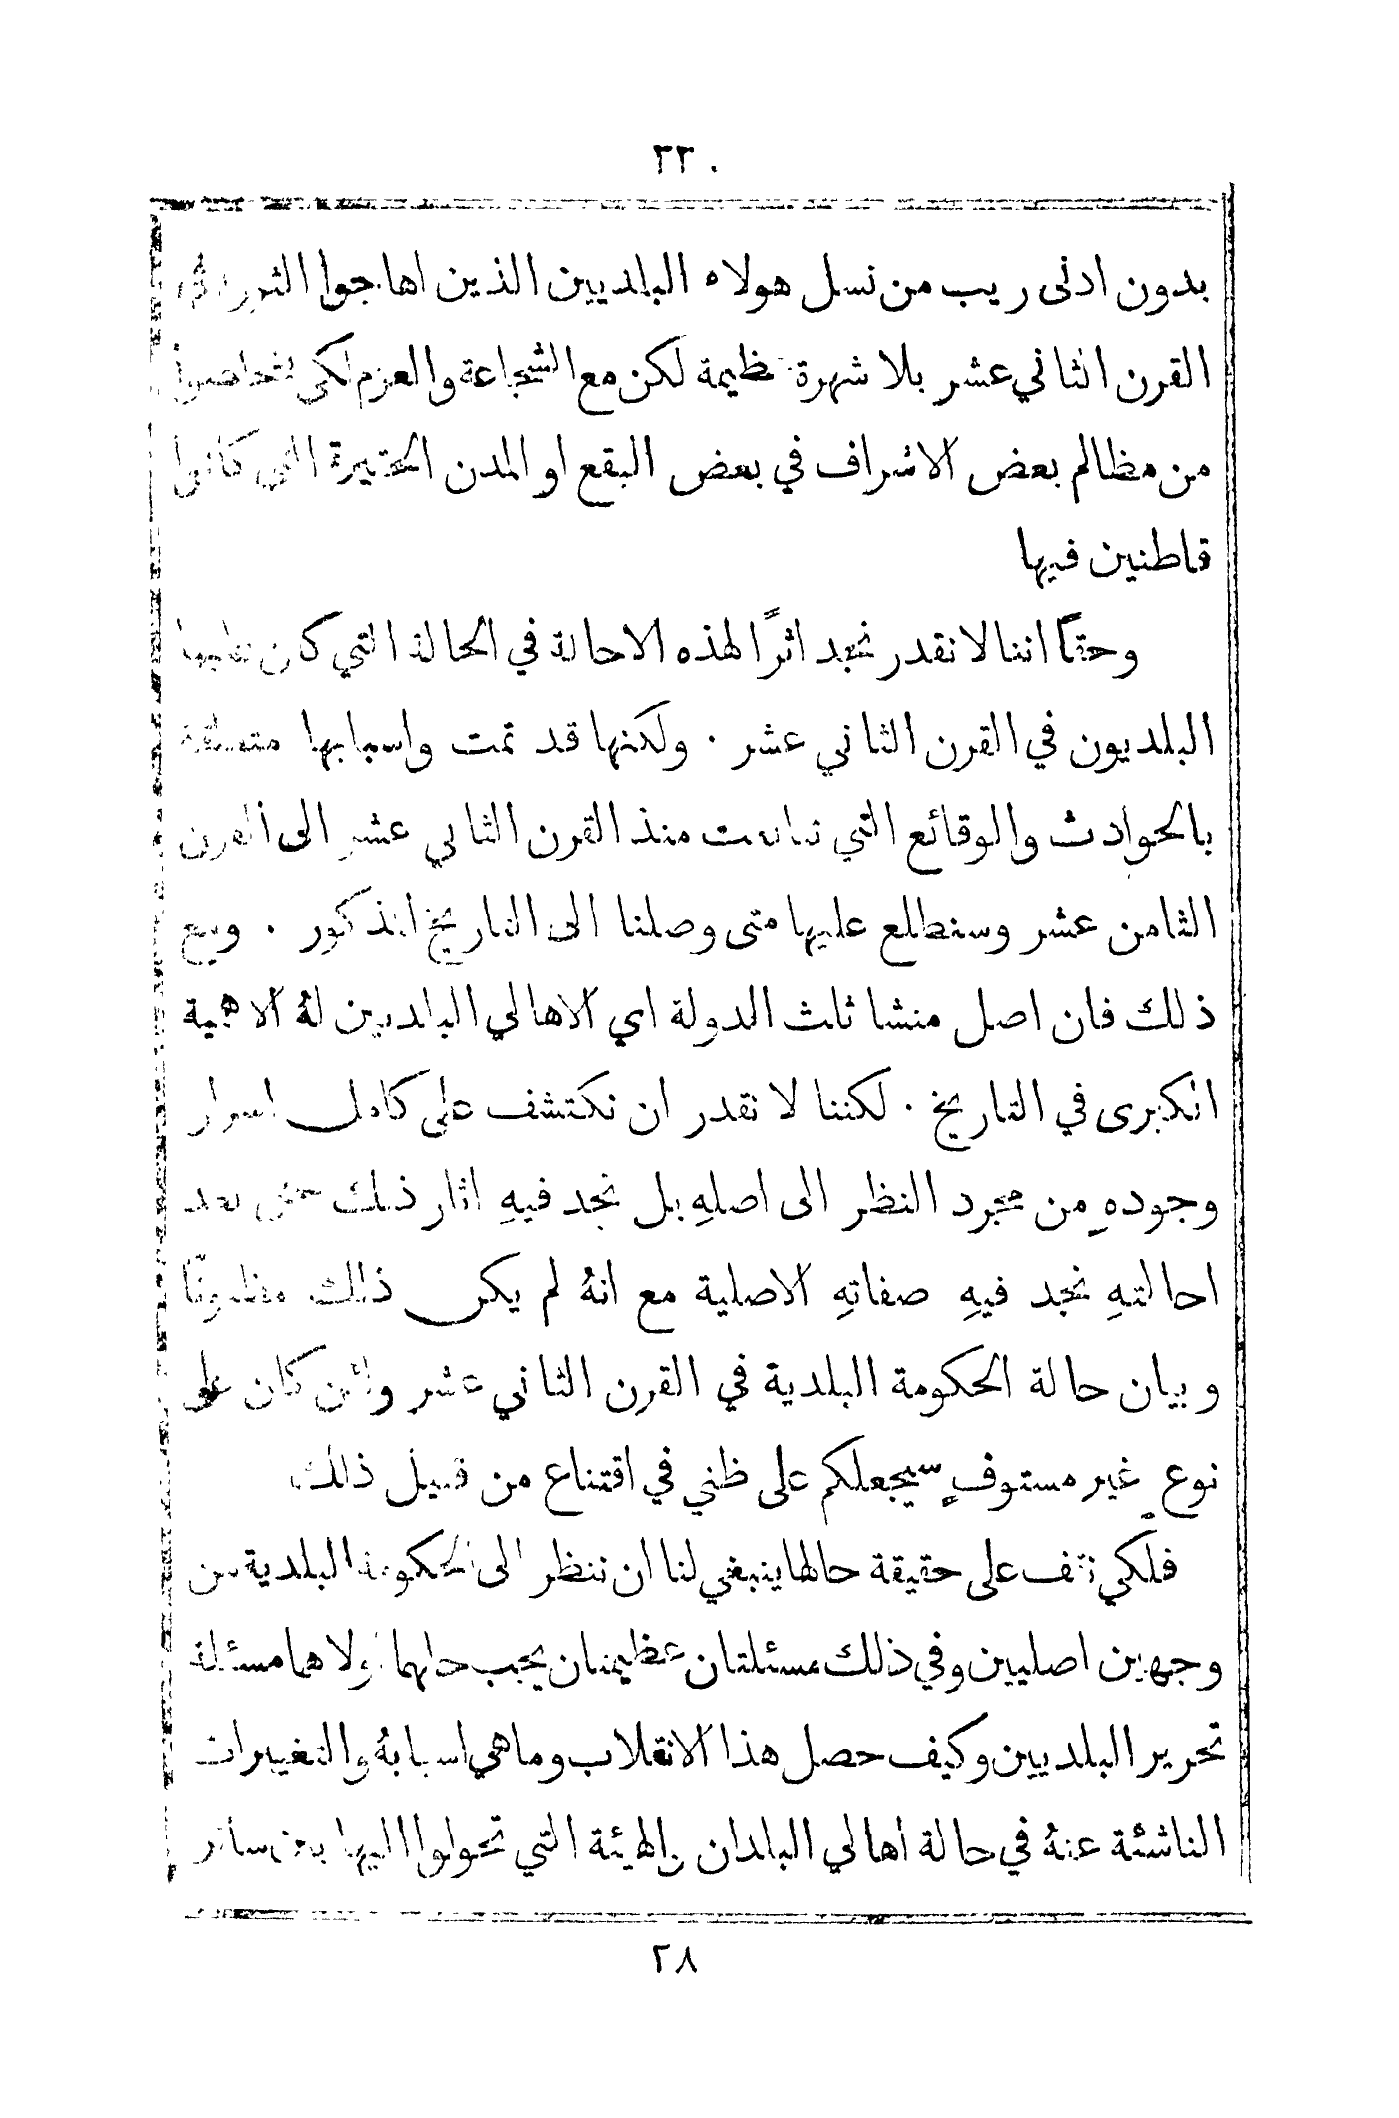 ٢٢٠
بدون ادنى ريب من نسل هولاء البلديين الذين اهاجوا الثورة في
القرن الثاني عشر بلا شهرة عظيمة لكن مع الشجاعة والعزم لكي
من مظالم بعض الاشراف في بعض البقع او المدن الحقيرة التي كانوا
قاطنين فيها
وحقًا اننا لا نقدر نجد اثرًا لهذه الاحالة في الحالة التي كان عليها
البلديون في القرن الثاني عشر . ولكنها قد تمت واسبابها متعلقة
بالحوادث والوقائع التي تتابعت منذ القرن الثاني عشر الى القرن
الثامن عشر وسنطلع عليها متى وصلنا الى التاريخ المذكور . ومع
ذلك فان اصل منشا ثلث الدولة اي الاهالي البلديين لهُ الاهمية
الكبرى في التاريخ . لكننا لا نقدر ان نكتشف على كامل اسرار
وجودهِ من مجرد النظر الى اصلهِ بل نجد فيهِ اثار ذلك حتى بعد
احالتهِ نجد فيهِ صفاتهِ الاصلية مع انهُ لم يكن ذلك مظنونًا
وبيان حالة الحكومة البلدية في القرن الثاني عشر ولئن كان على
نوعٍ غير مستوفٍ سيجعلكم على ظني في اقتناع من قبيل ذلك
فلكي نقف على حقيقة حالها ينبغي لنا ان ننظر الى الحكومة البلدية من
وجهين اصليين وفي ذلك مسئلتان عظيمتان يجب حلهما اولاهما مسئلة
تحرير البلديين وكيف حصل هذا الانقلاب وما هي اسبابهُ والتغييرات
الناشئة عنهُ في حالة اهالي البلدان والهيئة التي تحولوا اليها بين سائر
٢٨